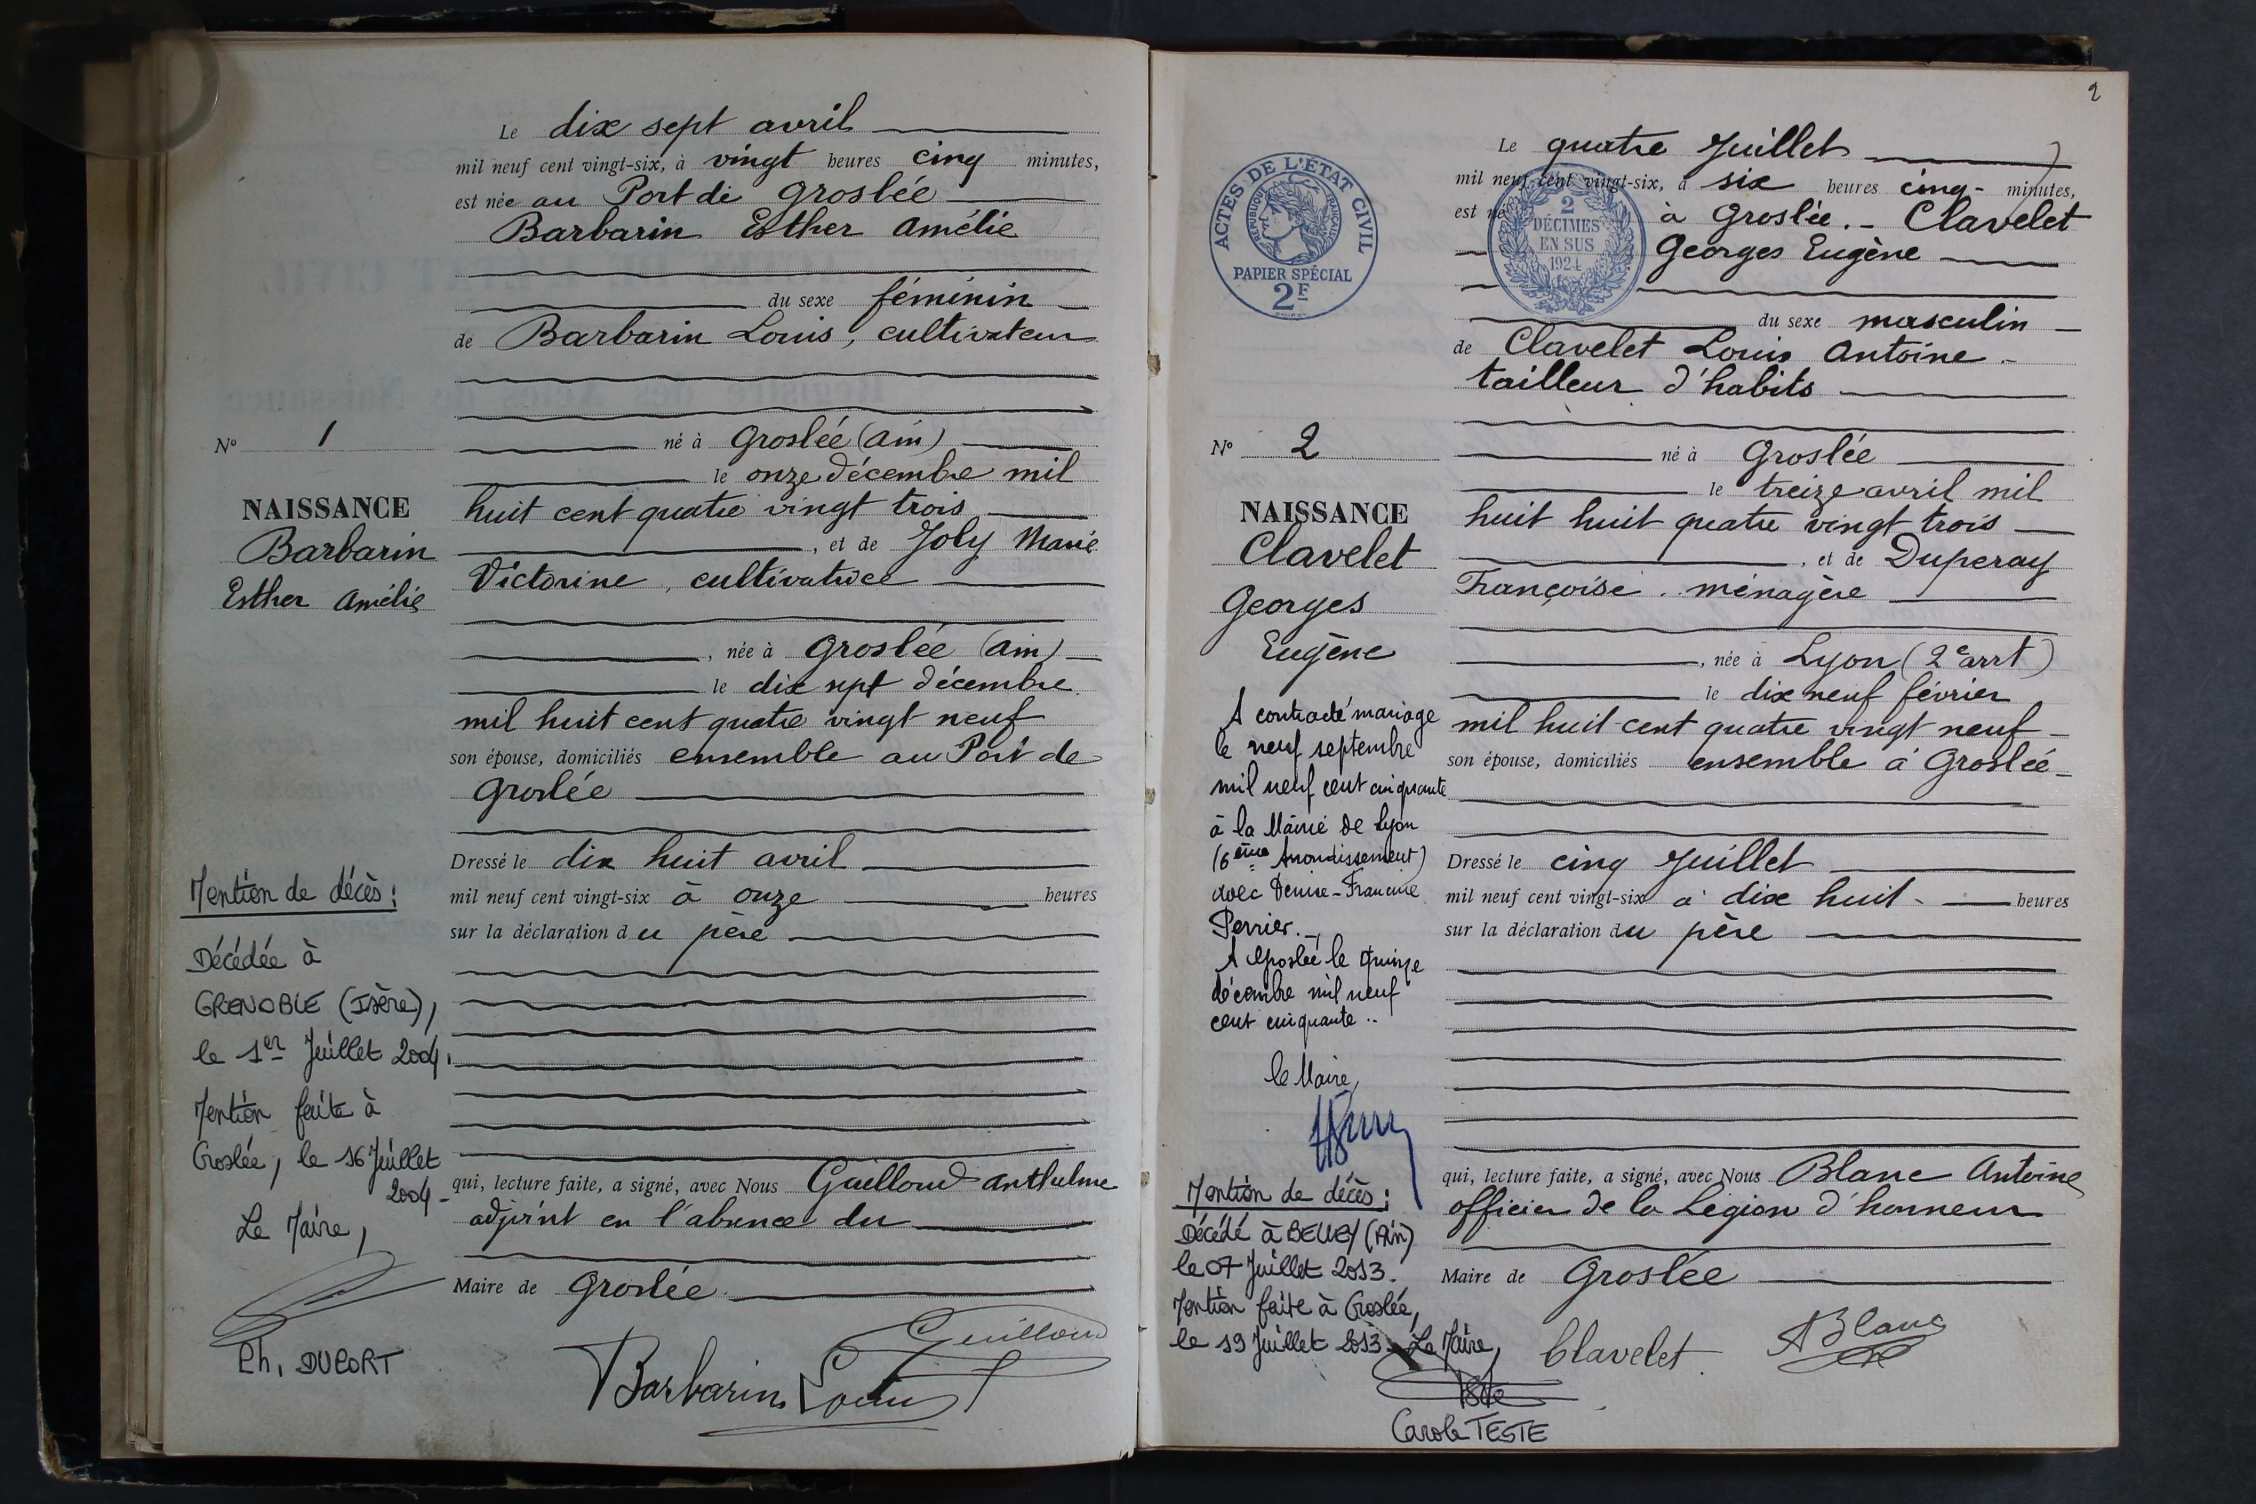 Le dix sept avril
mil neuf cent vingt-six, à vingt heures cinq minutes,
est née au Port de Groslée
Barbarin Esther Amélie
du sexe féminin
de Barbarin Louis, cultivateur
né à Groslée (Ain)
le onze décembre mil
huit cent quatre vingt trois
, et de Joly Marie
Victorine, cultivatrice
, née à Groslée (Ain)
le dix sept décembre
mil huit cent quatre vingt neuf
son épouse, domiciliés ensemble au Port de
Groslée
Dressé le dix huit avril
mil neuf cent vingt-six à onze heures
sur la déclaration du père
qui, lecture faite, a signé, avec Nous Guilloud Anthelme
adjoint en l'absence du
Maire de Groslée
Guilloud
Barbarin Louis
N° 1
NAISSANCE
Barbarin
Esther Amélie
Mention de décès :
Décédée à
GRENOBLE (Isère),
le 1er Juillet 2004.
Mention faite à
Groslée, le 16 Juillet
2004 -
Le Maire,
Ph. DUPORT
2
ACTES DE L'ÉTAT CIVIL
RÉPUBLIQUE FRANÇAISE
PAPIER SPÉCIAL
2F
2
DÉCIMES
EN SUS
1924
Le quatre Juillet
mil neuf cent vingt-six, à six heures cinq - minutes,
est né à Groslée. - Clavelet
Georges Eugène
du sexe masculin
de Clavelet Louis Antoine -
tailleur d'habits
né à Groslée
le treize avril mil
huit huit quatre vingt trois
, et de Duperay
Françoise . ménagère
, née à Lyon (2e arrt)
le dix neuf février
mil huit cent quatre vingt neuf -
son épouse, domiciliés ensemble à Groslée -
Dressé le cinq Juillet
mil neuf cent vingt-six à dix huit - heures
sur la déclaration du père
qui, lecture faite, a signé, avec Nous Blanc Antoine
officier de la Légion d'honneur
Maire de Groslée
Clavelet
ABlanc
N° 2
NAISSANCE
Clavelet
Georges
Eugène
A contracté mariage
le neuf septembre
mil neuf cent cinquante
à la Mairie de Lyon
(6ème Arrondissement)
avec Denise-Francine
Perrier. -
A Groslée le quinze
décembre mil neuf
cent cinquante ..
le Maire,
Mention de décès :
Décédé à BELLEY (Ain)
le 07 Juillet 2013.
Mention faite à Groslée,
le 19 Juillet 2013 - Le Maire,
Carole TESTE